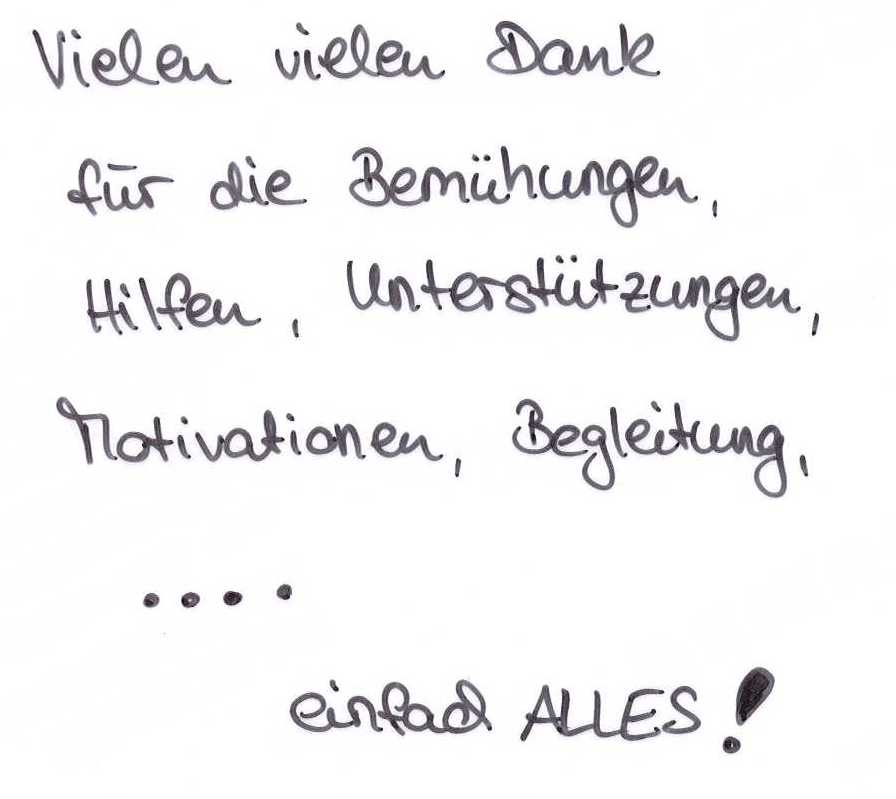 Vielen vielen Dank
für die Bemühungen,
Hilfen, Unterstützungen,
Motivationen, Begleitung,
....
einfach ALLES!